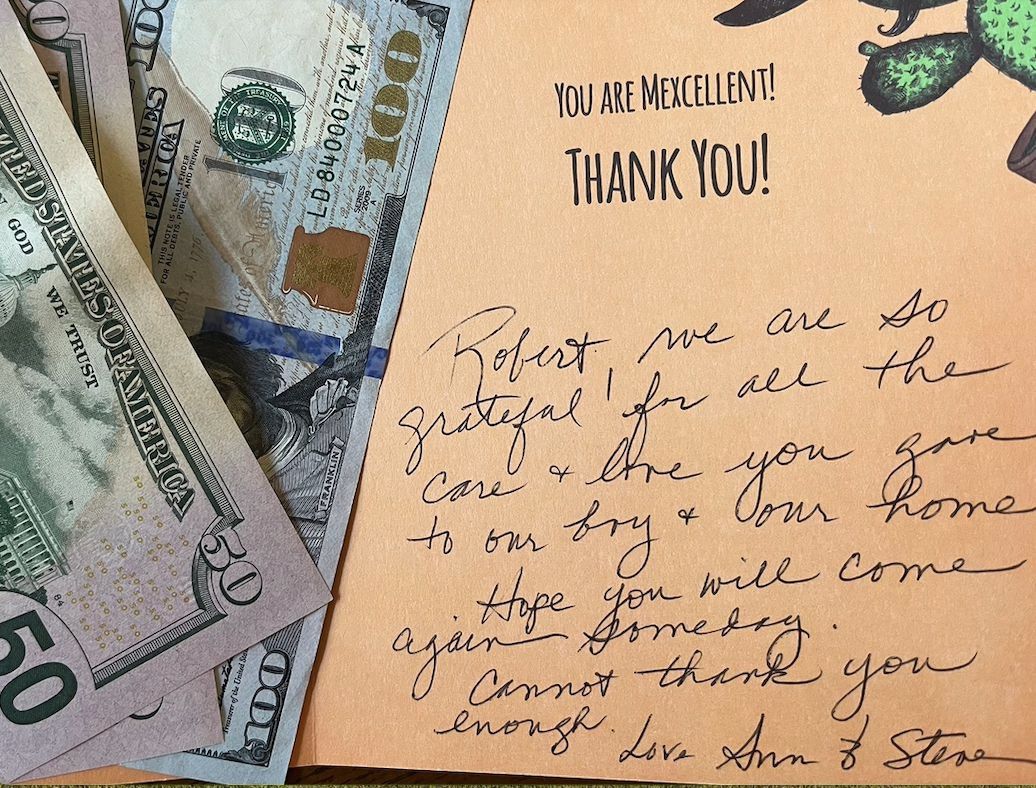 50
UNITED STATES OF AMERICA
IN GOD
WE TRUST
50
50
84
100
AMERICA
THIS NOTE IS LEGAL TENDER
FOR ALL DEBTS, PUBLIC AND PRIVATE
LD 84000724 A
SERIES
2009
A
100
FRANKLIN
100
Treasurer of the United States
YOU ARE MEXCELLENT!
THANK YOU!
Robert, we are so
grateful for all the
care & love you gave
to our boy & our home
. Hope you will come
again someday.
Cannot thank you
enough.
Love Ann & Steve